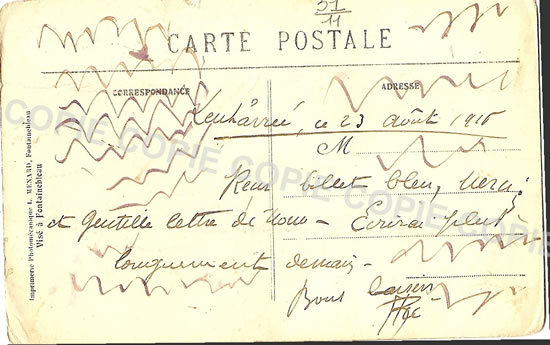 51
11
CARTE POSTALE
CORRESPONDANCE
ADRESSE
ce 23 Août 1915
M
Reçu billet bleu, Merci,
et gentille lettre de Nous - Écrirai plus
longuement demain -
Bons baisers
Imprimerie Photomécanique L. MENARD, Fontainebleau
Visé à Fontainebleau
COPIE COPIE COPIE COPIE COPIE COPIE